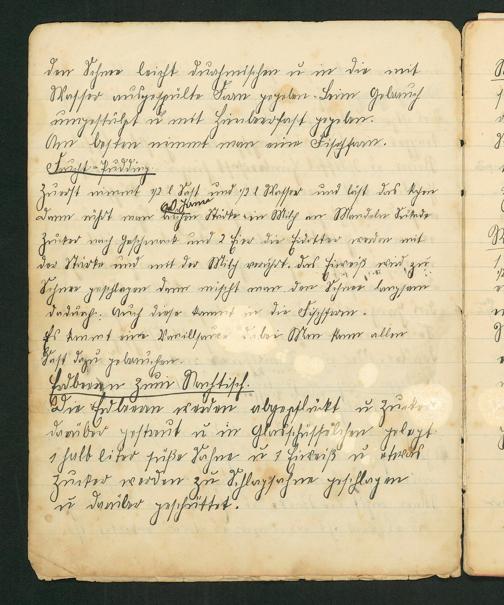 den Schnee leicht durchmischen u in die mit
Wasser ausgespülte Form gegeben. Beim Gebrauch
umgestülpt u mit Himbeersaft gegeben.
Am besten nimmt man eine Fischform.
Frucht-Pudding
Zuerst nimmt 1/2 l Saft und 1/2 l Wasser und läst das kochen
Dann rührt man Stärke in Milch an Mandeln
Zucker nach Geschmack und 2 Eier die Eidotter werden mit
der Stärke und mit der Milch verrührt. Das Eiweiß wird zu
Schnee geschlagen dann mischt man den Schnee langsam
dadurch. Auch diese kommt in die Fischform.
Es kommt eine Vanillsauce dabei Man kann allen
Saft dazu gebrauchen
Erdbeeren zum Nachtisch.
Die Erdbeeren werden abgepflückt u Zucker
darüber gestreut u in Glasschüsseln gelegt
1 halb liter süße Sahne u 1 Eiweiß u etwas
Zucker werden zu Schlagsahne geschlagen
u darüber geschüttet.